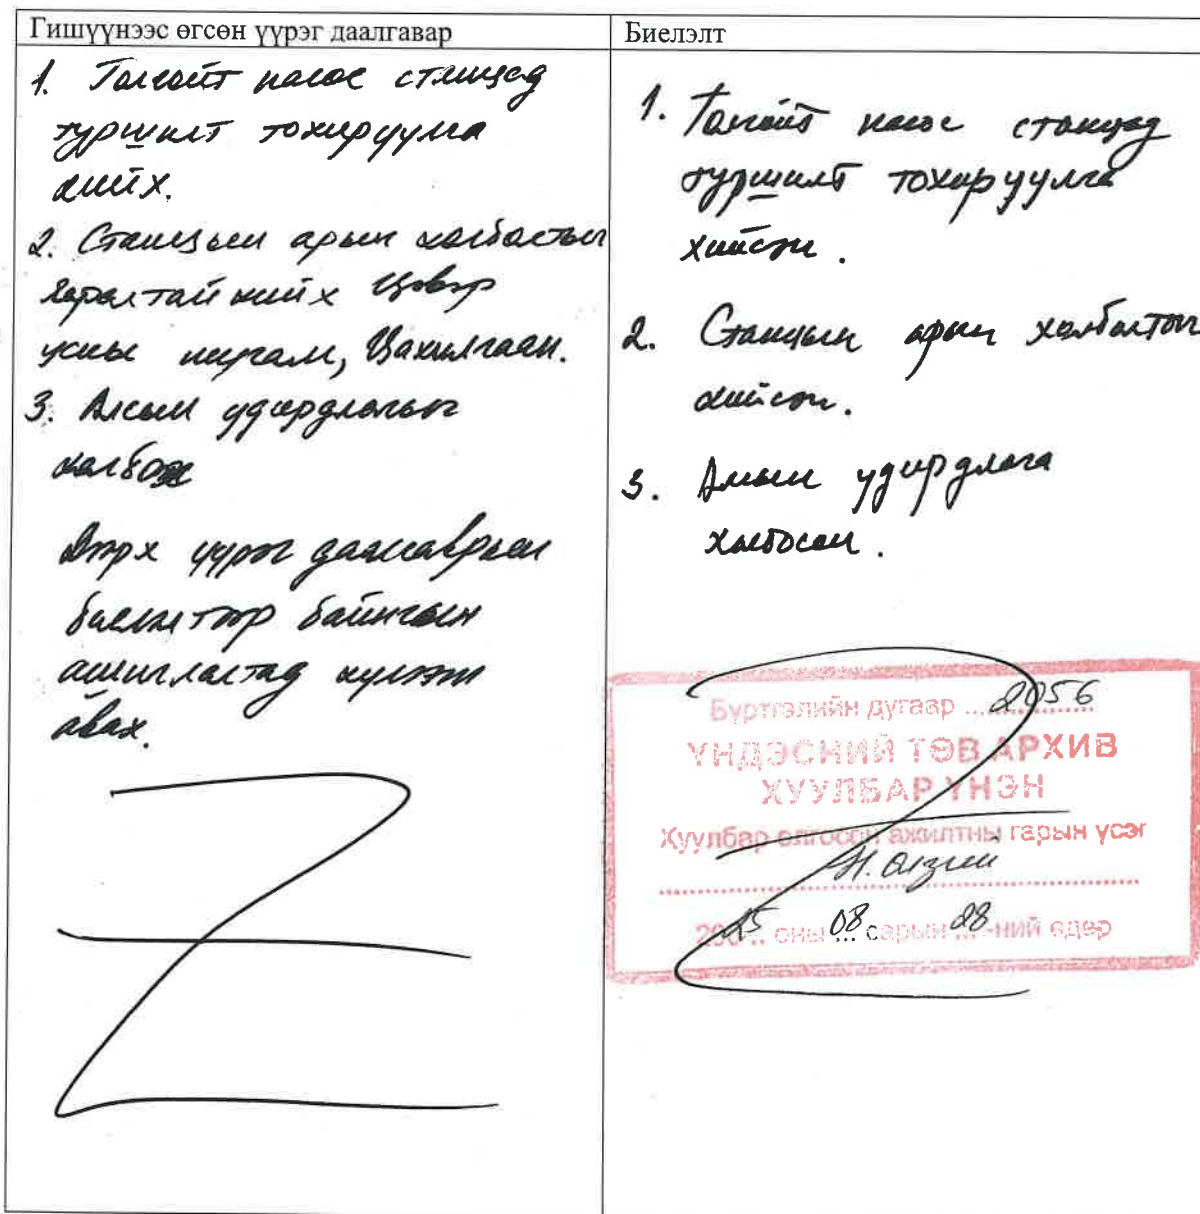 Гишүүнээс өгсөн үүрэг даалгавар
1. Толгойт насос станцад
туршилт тохируулга
хийх.
2. Станцын арын холболтыг
яаралтай хийх Цэвэр
усны шугам, Цахилгаан.
3. Алсын удирдлагыг
холбох
Дээрх үүрэг даалгаврын
биелэлтээр байнгын
ашиглалтад хүлээн
авах.
Биелэлт
1. Толгойт насос станцад
туршилт тохируулга
хийсэн.
2. Станцын арын холболтыг
хийсэн.
3. Алсын удирдлага
холбосон.
Бүртгэлийн дугаар ... 2056
ҮНДЭСНИЙ ТӨВ АРХИВ
ХУУЛБАР ҮНЭН
Хуулбар олгосон ажилтны гарын үсэг
25 оны 08 сарын 28-ний өдөр